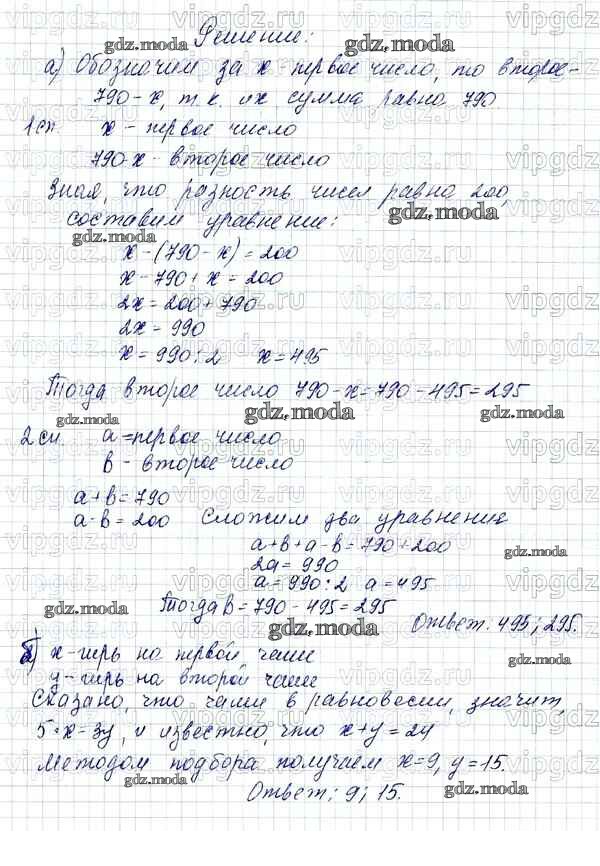 Решение:
а) Обозначим за x - первое число, то второе -
790-x, т.к. их сумма равна 790
1 сп. x - первое число
790-x - второе число
Зная, что разность чисел равна 200,
составим уравнение:
x-(790-x)=200
x-790+x=200
2x=200+790
2x=990
x=990:2 x=495
Тогда второе число 790-x=790-495=295
2 сп. a=первое число
в - второе число
a+в=790
a-в=200 Сложим два уравнения
a+в+a-в=790+200
2a=990
a=990:2 a=495
Тогда в=790-495=295
Ответ: 495; 295.
б) x-гирь на первой чаше
y-гирь на второй чаше
Сказано, что чаши в равновесии, значит,
5·x=3y, и известно, что x+y=24
Методом подбора получаем x=9, y=15.
Ответ: 9; 15.
vipgdz.ru
gdz.moda